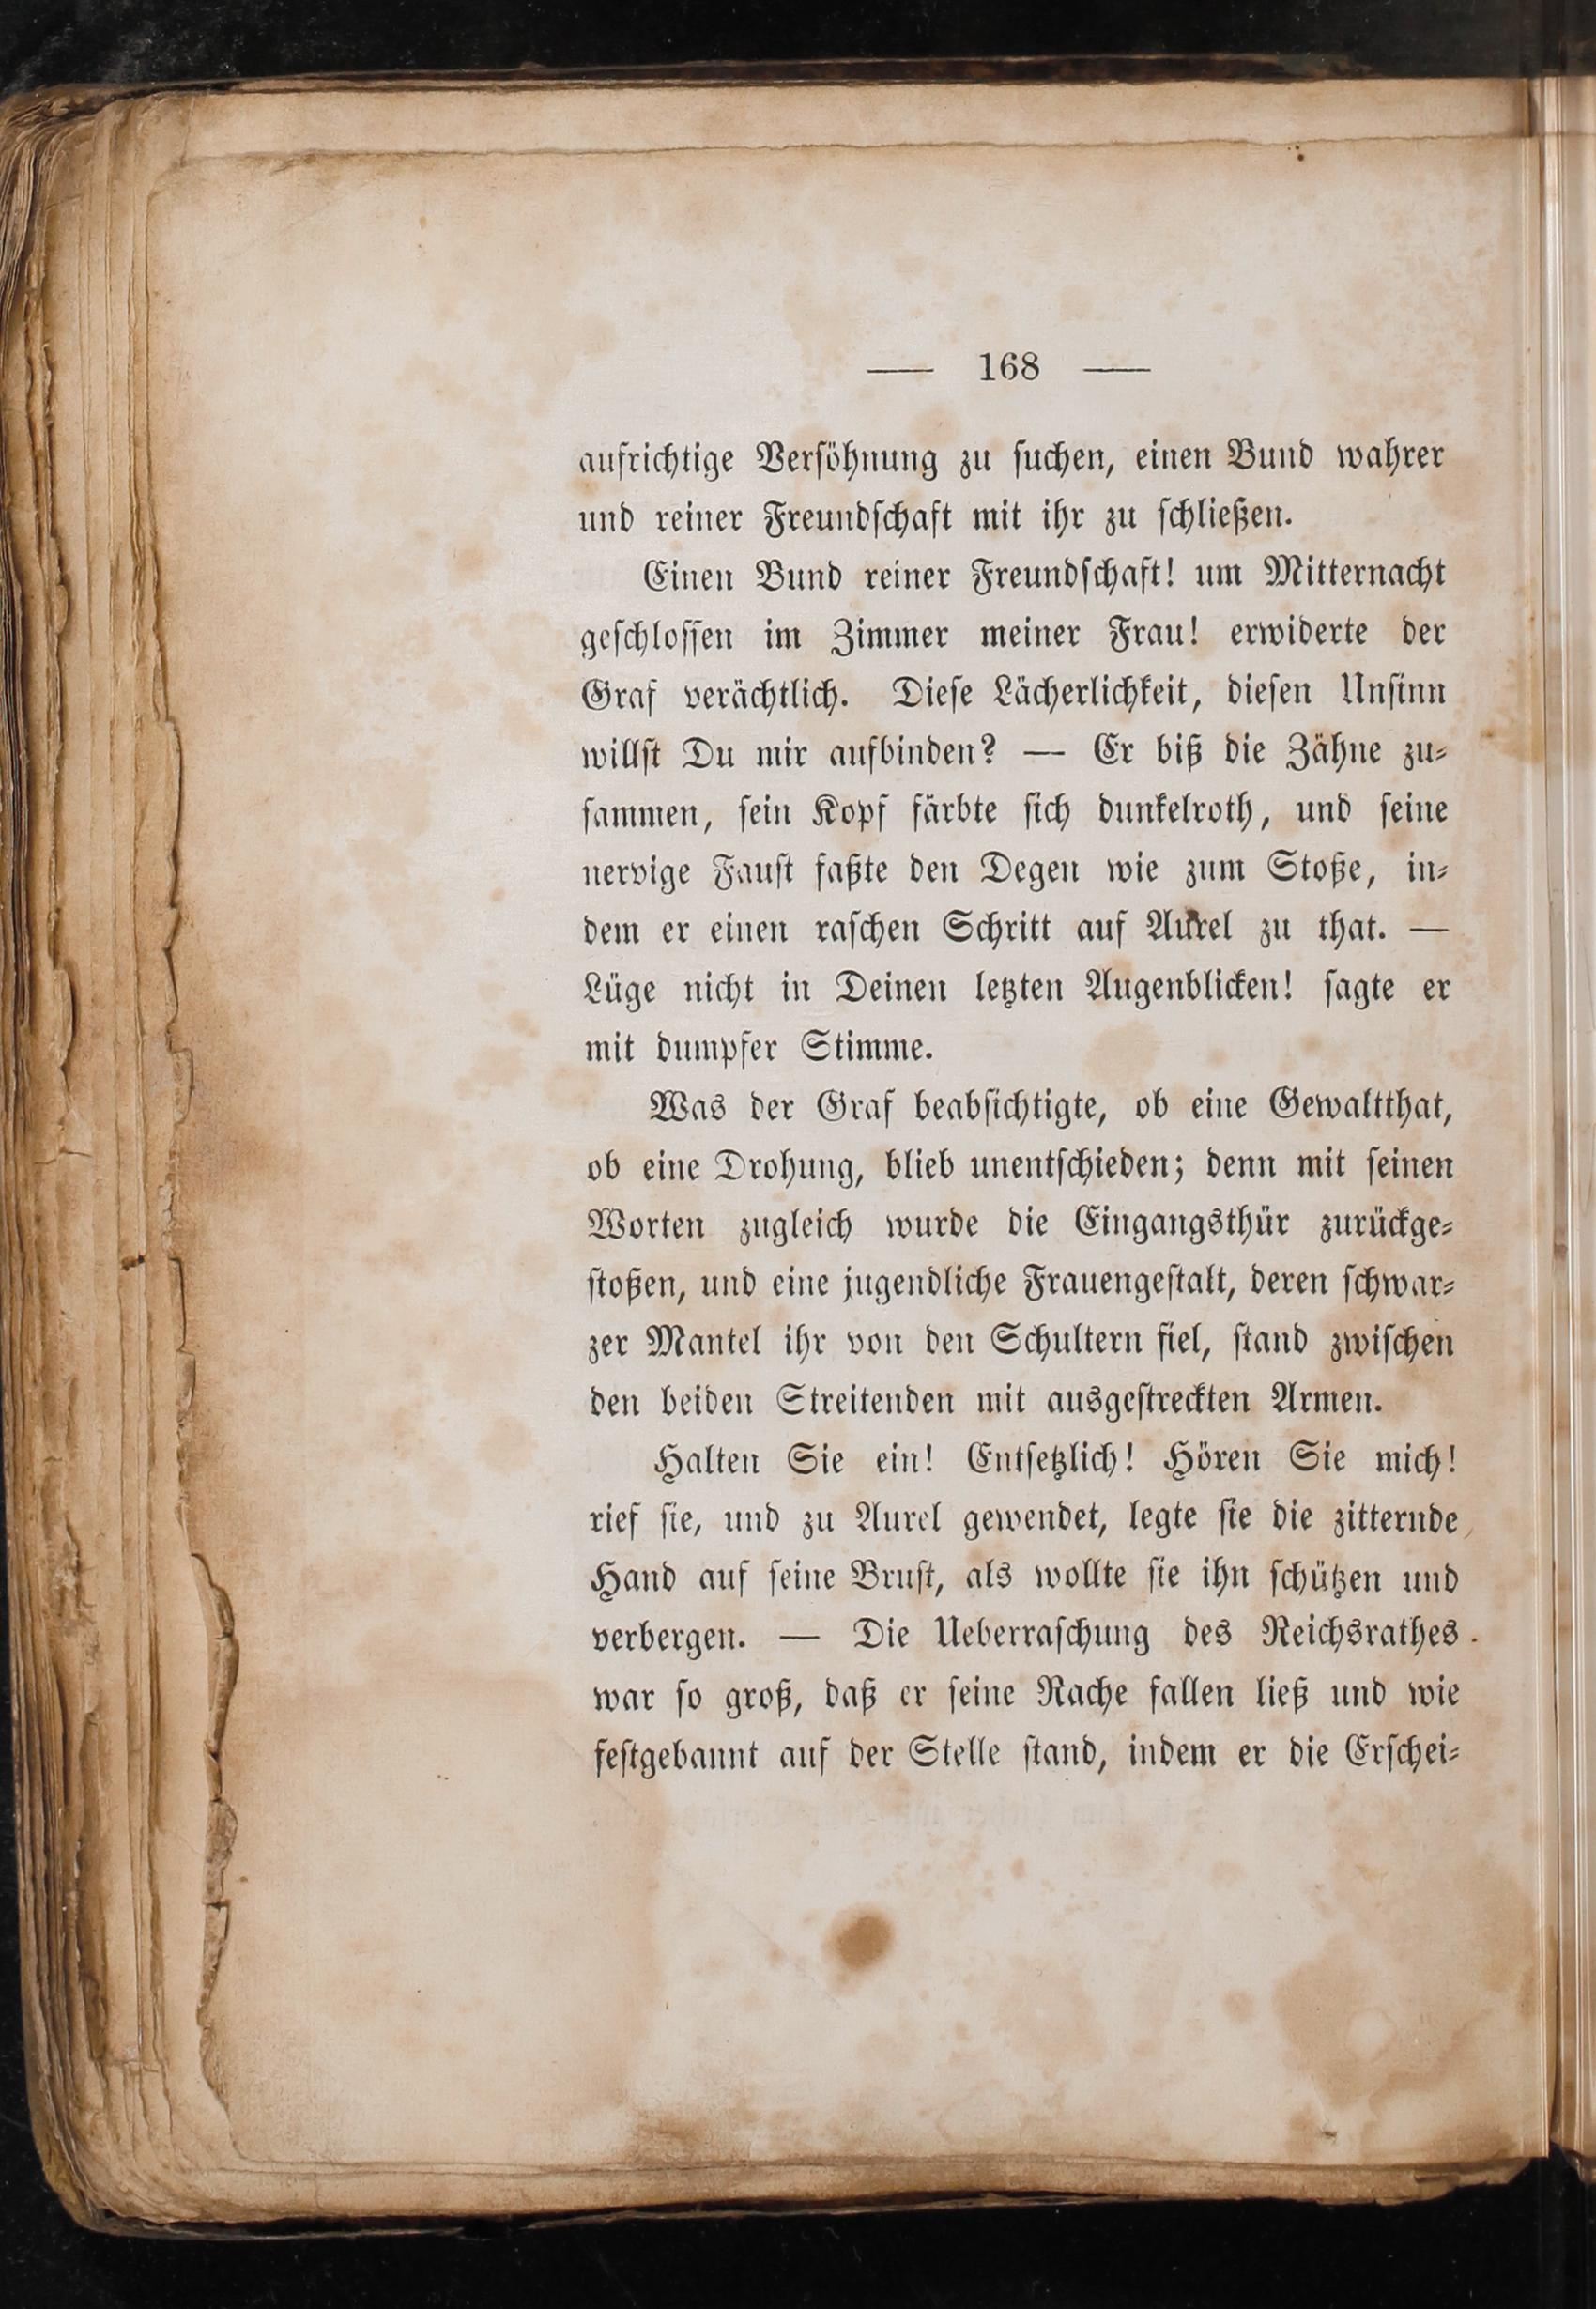 — 168 —
aufrichtige Versöhnung zu suchen, einen Bund wahrer
und reiner Freundschaft mit ihr zu schließen.
Einen Bund reiner Freundschaft! um Mitternacht
geschlossen im Zimmer meiner Frau! erwiderte der
Graf verächtlich. Diese Lächerlichkeit, diesen Unsinn
willst Du mir aufbinden? — Er biß die Zähne zu-
sammen, sein Kopf färbte sich dunkelroth, und seine
nervige Faust faßte den Degen wie zum Stoße, in-
dem er einen raschen Schritt auf Aurel zu that. —
Lüge nicht in Deinen letzten Augenblicken! sagte er
mit dumpfer Stimme.
Was der Graf beabsichtigte, ob eine Gewaltthat,
ob eine Drohung, blieb unentschieden; denn mit seinen
Worten zugleich wurde die Eingangsthür zurückge-
stoßen, und eine jugendliche Frauengestalt, deren schwar-
zer Mantel ihr von den Schultern fiel, stand zwischen
den beiden Streitenden mit ausgestreckten Armen.
Halten Sie ein! Entsetzlich! Hören Sie mich!
rief sie, und zu Aurel gewendet, legte sie die zitternde
Hand auf seine Brust, als wollte sie ihn schützen und
verbergen. — Die Ueberraschung des Reichsrathes
war so groß, daß er seine Rache fallen ließ und wie
festgebannt auf der Stelle stand, indem er die Erschei-